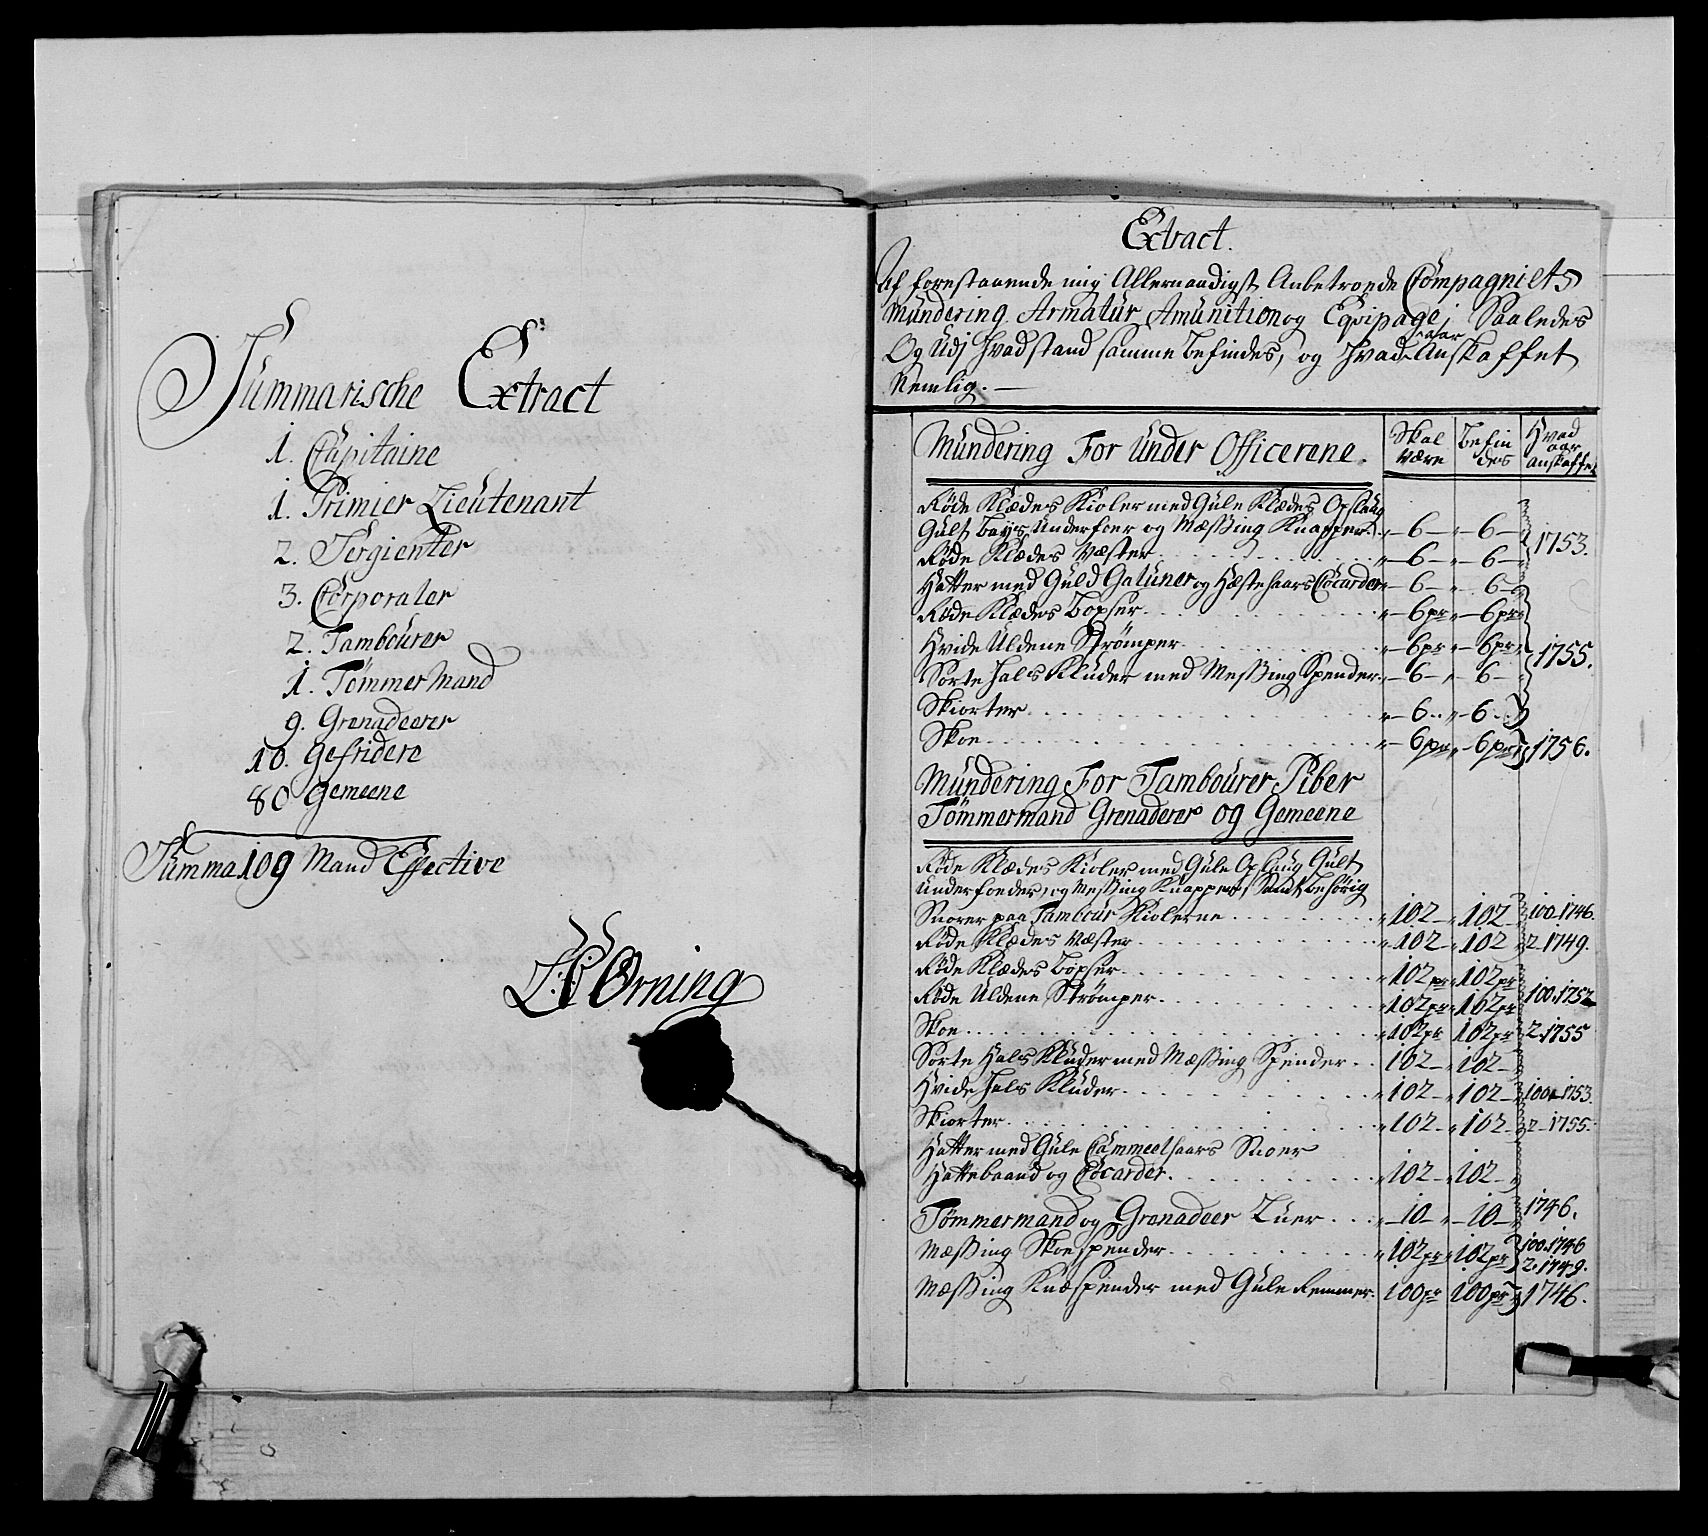 Summarische Extract
1. Capitaine
1. Primier Lieutenant
2. Sergienter
3. Corporaler
2. Tambourer
1. Tömmer Mand
9. Grenadeerer
10. Gefridere
80 Gemeene
Summa 109 Mand Effective
Örning
Extract.
Af forestaaende mig Allernaadigst Anbetroede Compagniets
Mundering, Armatur, Amunition og Eqvipage, Saaledes
Og Udj hvad stand samme befindes, og hvad aar Anskaffet
Nemlig. —
Mundering For Under Officerene. Skal være Befindes Hvad aar anskaffet
Røde Klædes Kioler med Gule Klædes Opslaug
Gült bays Underfoer og Mæssing Knapper. 6 6
Røde Klædes Væster 6 6 1753.
Hatter med Guld Galuner og Hæstehaars Cocarder 6 6
Røde Klædes Boxser 6 pr 6 pr
Hvide Uldene Strømper 6 pr 6 pr 1755.
Sorte Hals Klüder med Messing Spender 6 6
Skiorter 6 6
Skoe 6 pr 6 pr 1756.
Mundering For Tambourer Piber
Tömmermand Grenaderer og Gemeene
Røde Klædes Kioler med Gule Opslaug Gült
Underfoeder, og Messing Knapper, Samt behörig
Snorer paa Tambour Kiolerne 102 102 100. 1746.
Røde Klædes Væster 102 102 2. 1749.
Røde Klædes Boxser 102 pr 102 pr
Røde Uldene Strømper 102 pr 102 pr 100. 1752
Skoe 102 pr 102 pr 2. 1755
Sorte Hals Klüder med Mæssing Spender 102 102
Hvide Hals Klüder 102 102 100. 1753.
Skiorter 102 102 2. 1755.
Hatter med Gule Cammeelhaars Snoer
Hattebaand og Cocarder 102 102
Tömmermand og Grenadeer Luer 10 10 1746.
Mæssing Skoespender 102 pr 102 pr 100. 1746 2. 1749.
Mæssing Knæspender med Gule Remmer 100 pr 100 pr 1746.